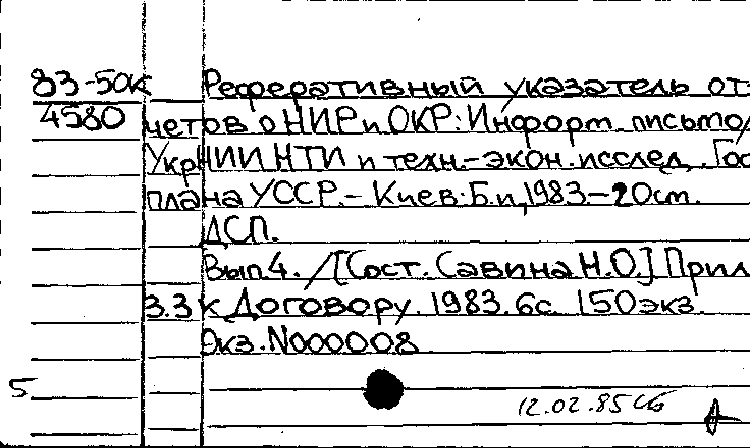 83-50к Реферативный указатель от
4580 четов о НИР и ОКР: Информ. письмо/
УкрНИИНТИ и техн.-экон. исслед. Гос
плана УССР.- Киев: Б.и, 1983-20см.
ДСП.
Вып.4. /[Сост. Савина Н.О.] Прил
3.3 к Договору. 1983. 6с. 150экз.
Экз. N000008
5
12.02.85